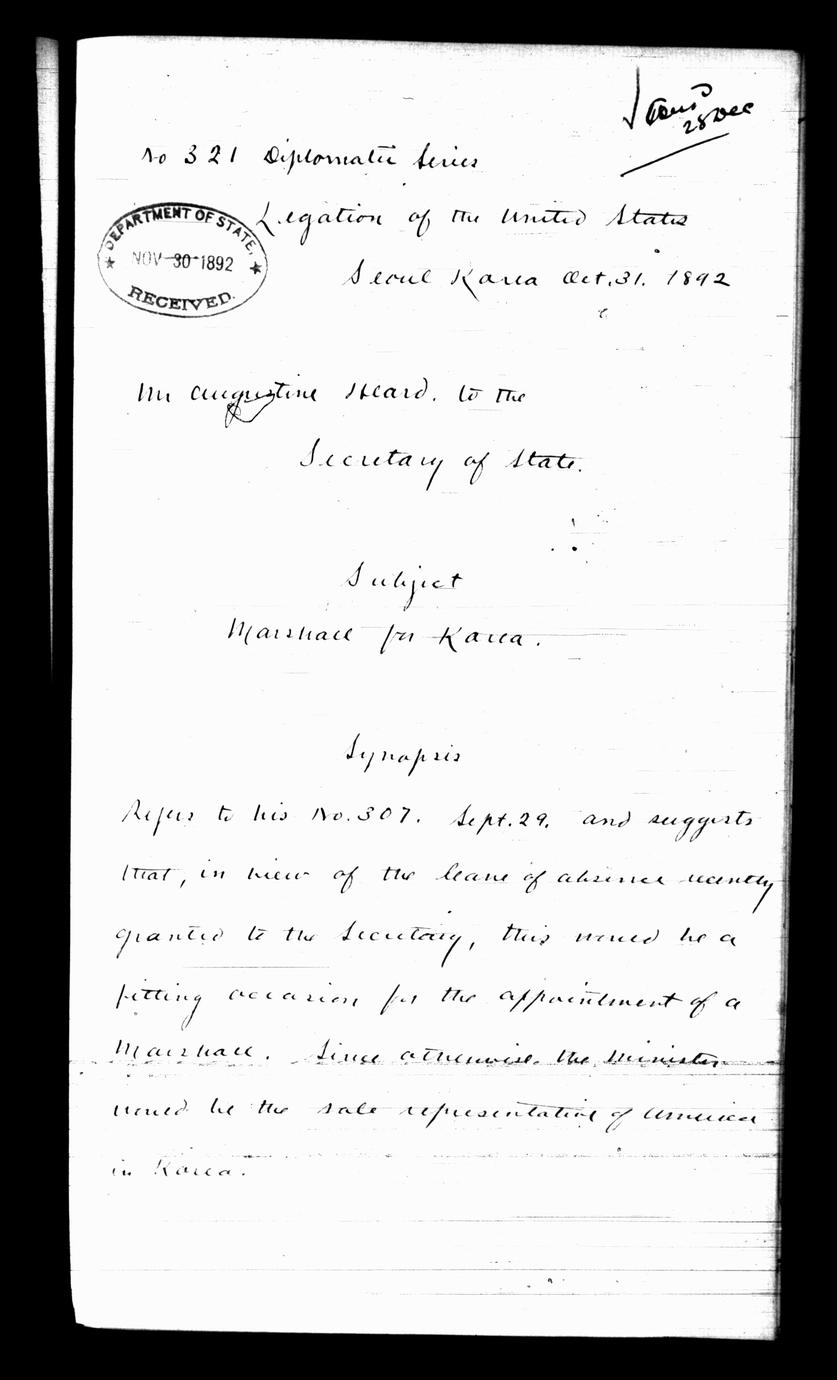 28 Dec
No 321 Diplomatic Series
Legation of the United States
DEPARTMENT OF STATE,
NOV 30 1892
RECEIVED.
Seoul Korea Oct. 31. 1892
Mr Augustine Heard. to the
Secretary of State.
Subject
Marshall for Korea.
Synopsis
Refers to his No. 307. Sept. 29. and suggests
that, in view of the leave of absence recently
granted to the Secretary, this would be a
fitting occasion for the appointment of a
Marshall. Since otherwise the Minister
would be the sole representative of America
in Korea.